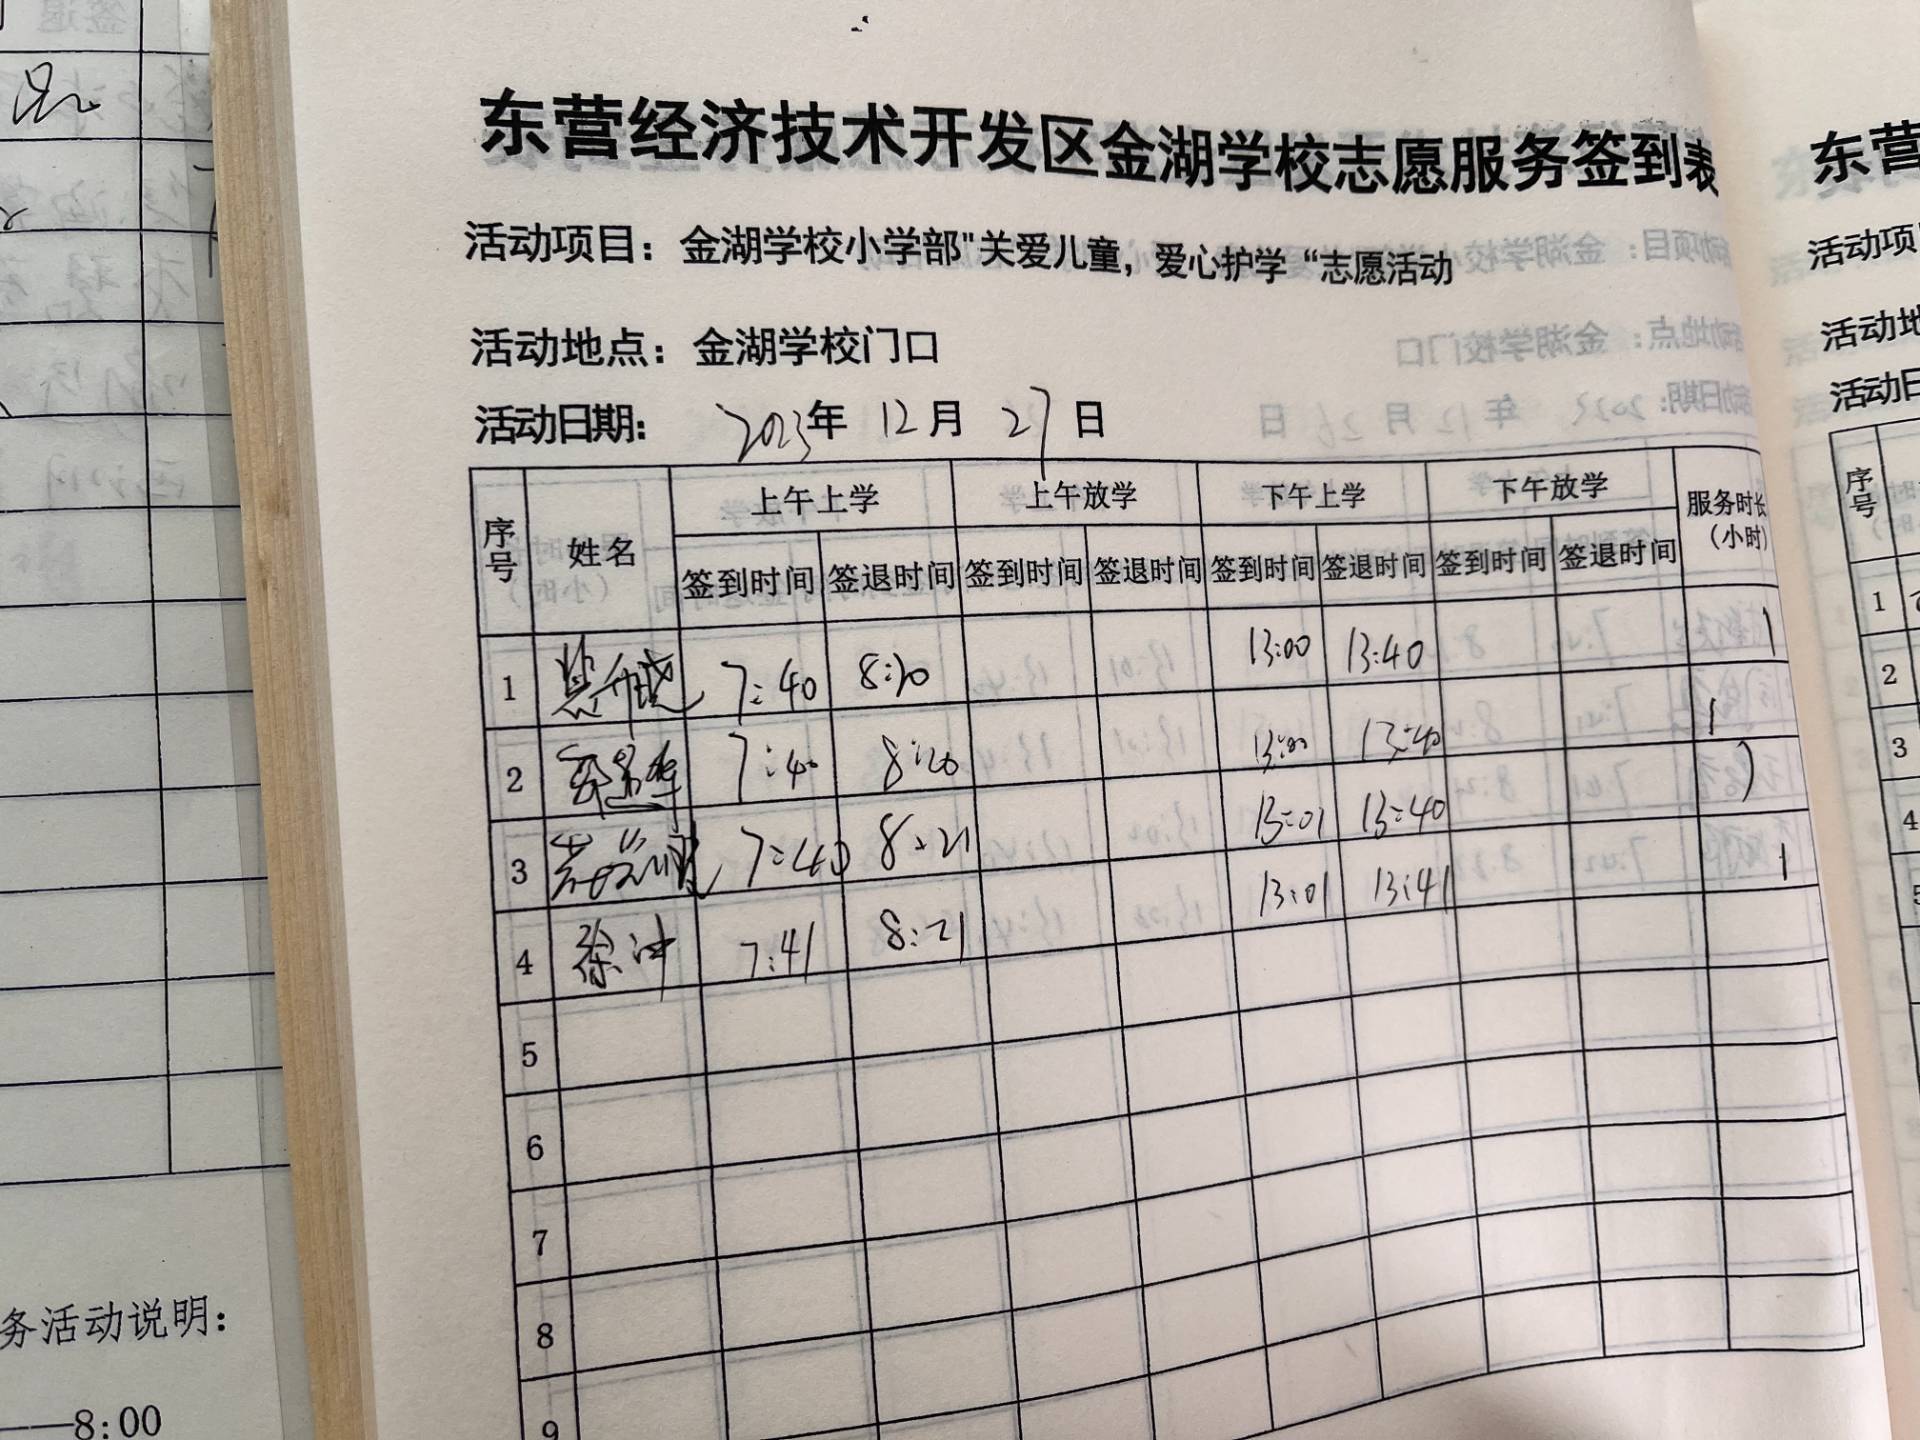 东营经济技术开发区金湖学校志愿服务签到表
活动项目：金湖学校小学部"关爱儿童，爱心护学“志愿活动
活动地点：金湖学校门口
活动日期： 2023年 12月 27日
序号 姓名 上午上学 上午放学 下午上学 下午放学 服务时长（小时）
签到时间 签退时间 签到时间 签退时间 签到时间 签退时间 签到时间 签退时间
1 7:40 8:20 13:00 13:40 1
2 7:40 8:20 13:00 13:40 1
3 7:40 8:21 13:01 13:40 1
4 徐冲 7:41 8:21 13:01 13:41 1
5
6
7
8
9
务活动说明：
——8:00
东营
活动项
活动地
活动日
序号
1
2
3
4
5